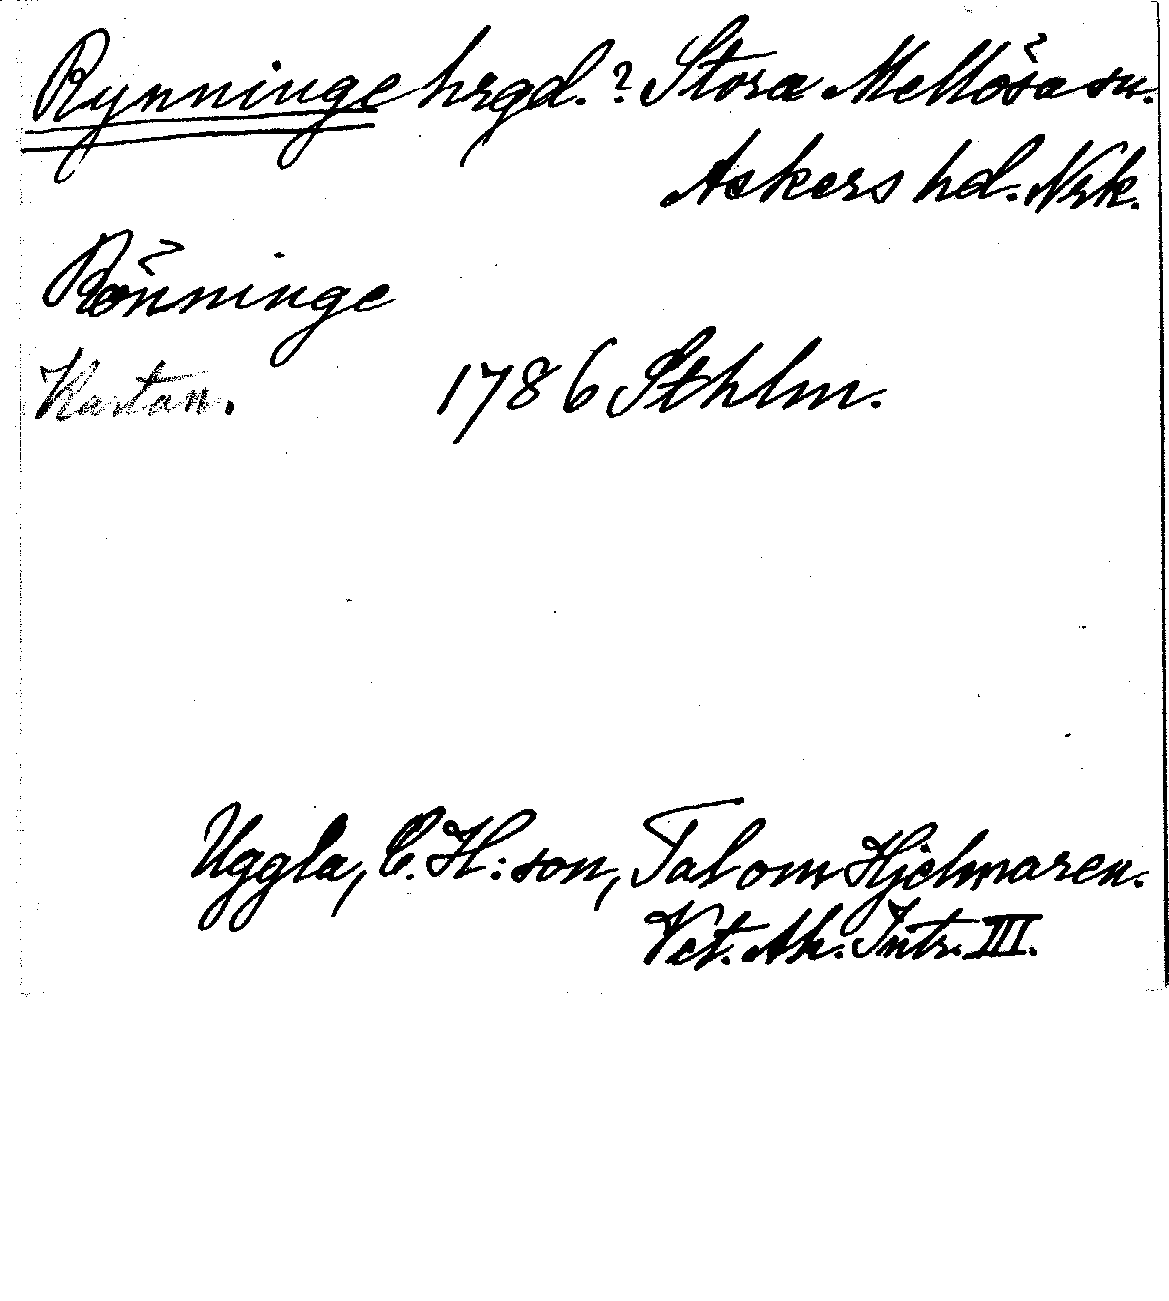 Rynninge hrgd.? Stora Mellösa sn.
Askers hd. Nrk.
Rönninge
Kartan. 1786 Sthlm.
Uggla, C. H:son, Tal om Hjelmaren.
Vet. Ak. Intr. III.